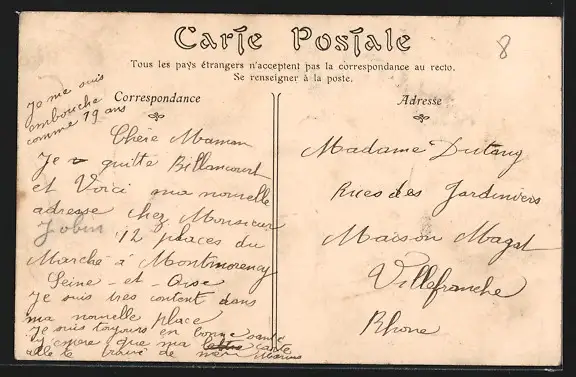 Carte Postale
Tous les pays étrangers n'acceptent pas la correspondance au recto.
Se renseigner à la poste.
8
Correspondance
Je me suis
embouche
comme 19 ans
Chère Maman
Je quitte Billancourt
et Voici ma nouvelle
adresse chez Monsieur
Jobin 12 places du
Marché à Montmorency
Seine-et-Oise
Je suis tres content dans
ma nouvelle place
Je suis toujours en bonne santé
J'espere que ma lettre carte
de
Adresse
Madame
Rues des Jardiniers
Maison
Villefranche
Rhone